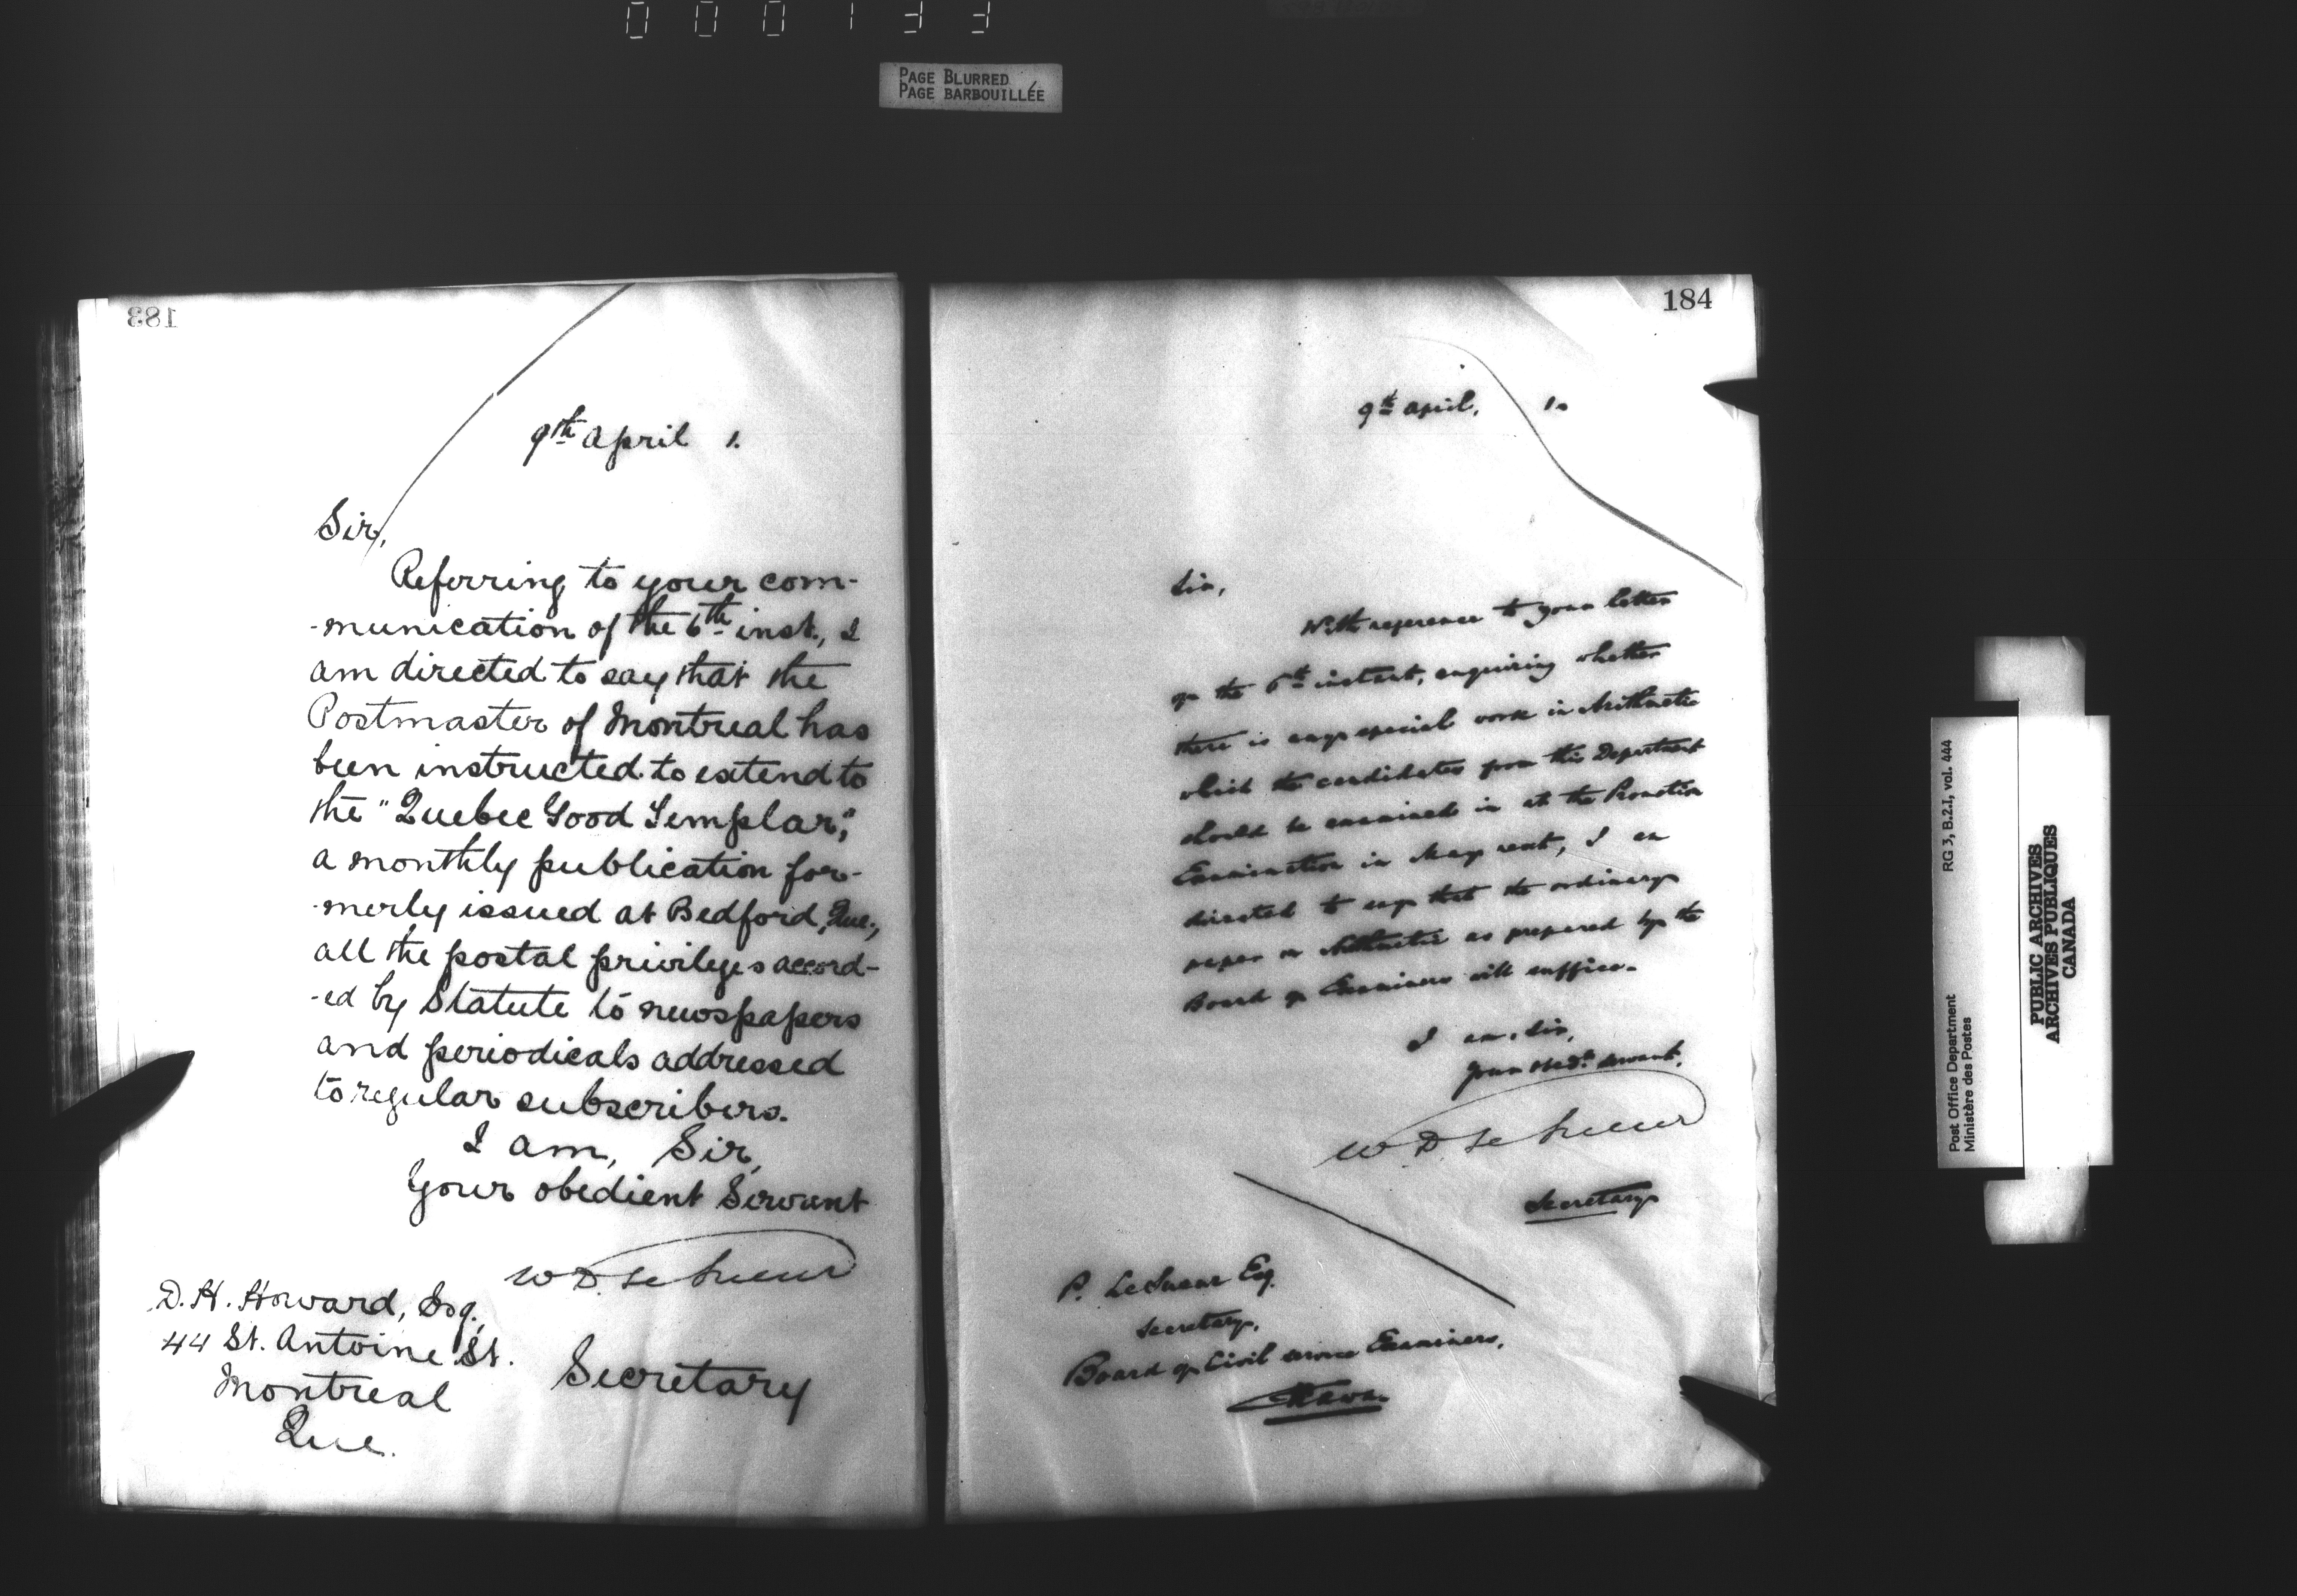 000133
PAGE BLURRED
PAGE BARBOUILLÉE
183
9th April 1.
Sir,
Referring to your com-
-munication of the 6th inst., I
am directed to say that the
Postmaster of Montreal has
been instructed to extend to
the "Quebec Good Templar,"
a monthly publication for-
-merly issued at Bedford, Que.,
all the postal privileges accord-
-ed by Statute to newspapers
and periodicals addressed
to regular subscribers.
I am, Sir,
Your obedient Servant
W D Le Sueur
Secretary
D. H. Howard, Esq.,
44 St. Antoine St.
Montreal
Que.
184
9th April, 1.
Sir,
With reference to your letter
of the 6th instant, enquiring whether
there is any special work in Arithmetic
which the candidates from this Department
should be examined in at the Promotion
Examination in May next, I am
directed to say that the ordinary
paper in Arithmetic as prepared by the
Board of Examiners will suffice.
I am, Sir,
Your obedt. servant,
W. D. Le Sueur
Secretary
P. LeSueur Esq.
Secretary,
Board of Civil Service Examiners,
Ottawa.
Post Office Department
Ministère des Postes
RG 3, B.2.I, vol. 444
PUBLIC ARCHIVES
ARCHIVES PUBLIQUES
CANADA